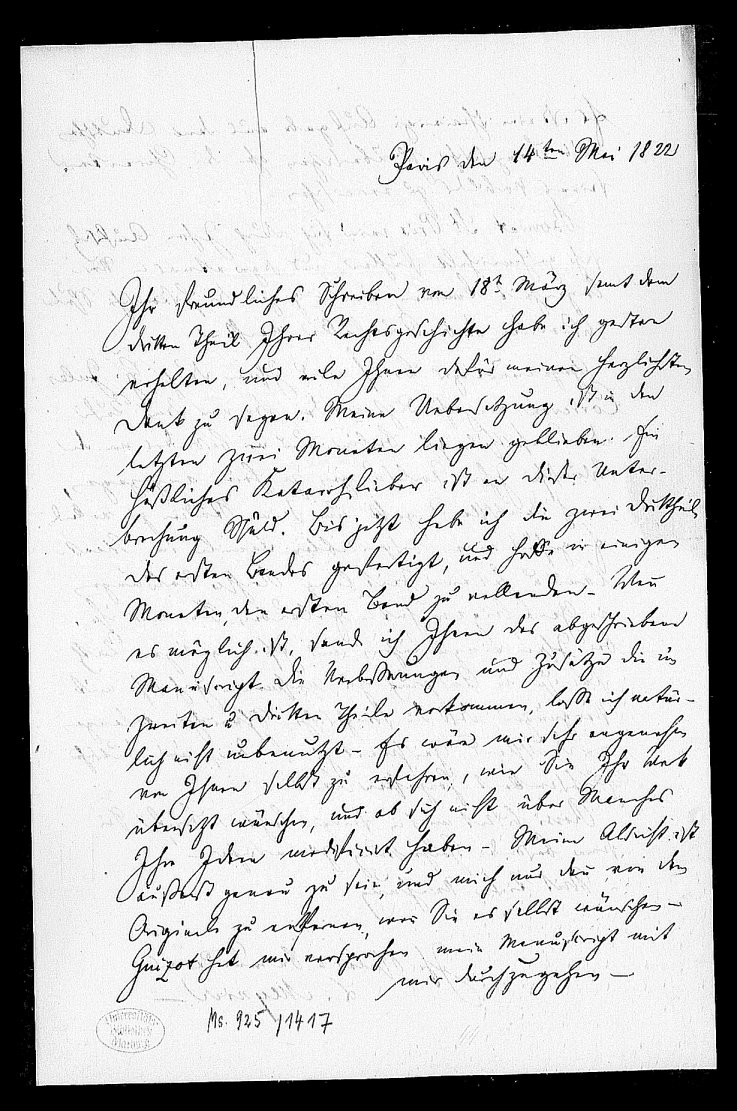 Paris den 14ten Mai 1822
Ihr freundliches Schreiben vom 18t März samt dem
dritten Theil Ihrer Rechtsgeschichte habe ich gestern
erhalten, und eile Ihnen dafür meinen herzlichsten
Dank zu sagen. Meine Uebersetzung ist in den
letzten zwei Monaten liegen geblieben. Ein
häßliches Katarrhfieber ist an dieser Unter-
brechung Schuld. Bis jetzt habe ich die zwei Drittheile
des ersten Bandes gefertigt, und hoffe in einigen
Monaten den ersten Band zu vollenden – Wenn
es möglich ist, sende ich Ihnen das abgeschriebene
Manuscript. Die Verbesserungen und Zusätze die im
zweiten u dritten Theile vorkommen, lasse ich natür-
lich nicht unbenutzt – Es wäre mir sehr angenehm
von Ihnen selbst zu erfahren, wie Sie Ihr Werk
übersetzt wünschen, und ob sich nicht über Manches
Ihre Ideen modificirt haben – Meine Absicht ist
äußerst genau zu sein, und mich nur dann von dem
Originale zu entfernen, wo Sie es selbst wünschen –
Guizot hat mir versprochen mein Manuscript mit
mir durchzugehen –
Ms. 925/1417
Universitäts
Bibliothek
Marburg